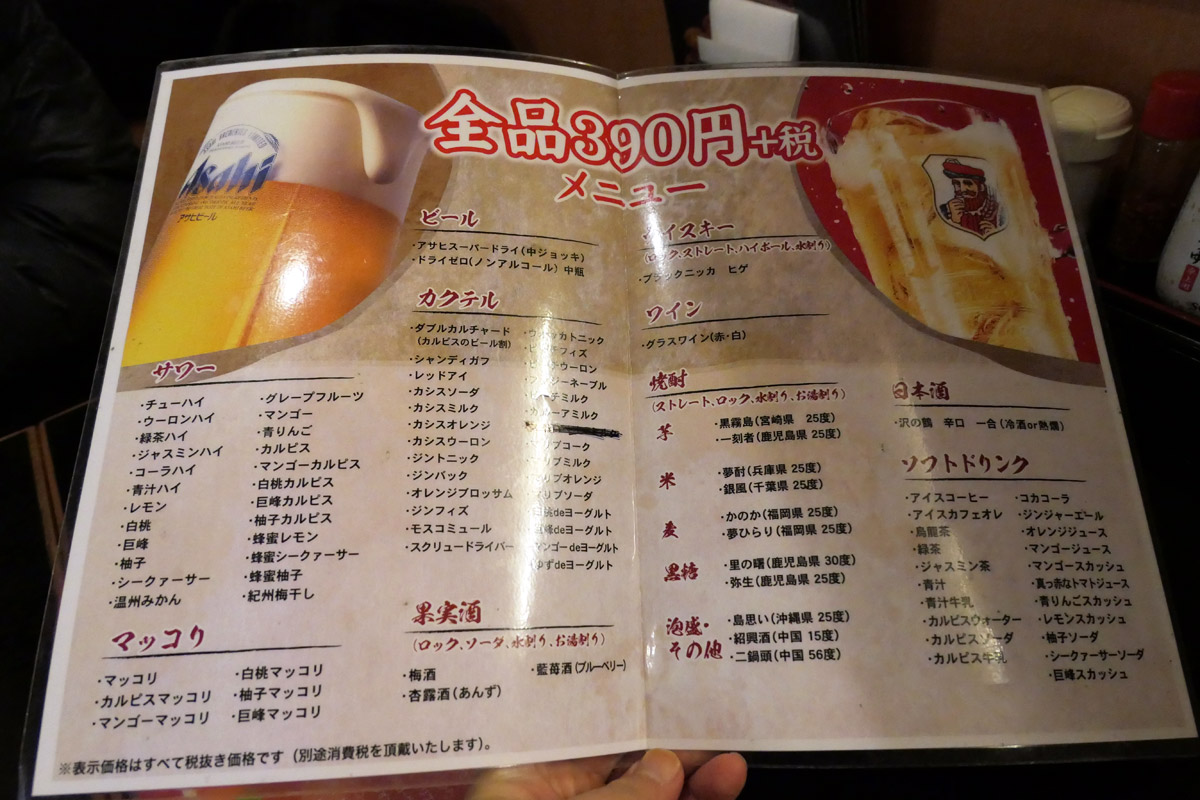 全品390円+税
メニュー
Asahi
アサヒビール
ビール
・アサヒスーパードライ(中ジョッキ)
・ドライゼロ(ノンアルコール) 中瓶
カクテル
・ダブルカルチャード
(カルピスのビール割)
・シャンディガフ
・レッドアイ
・カシスソーダ
・カシスミルク
・カシスオレンジ
・カシスウーロン
・ジントニック
・ジンバック
・オレンジブロッサム
・ジンフィズ
・モスコミュール
・スクリュードライバー
ミルク
ミルク
コーク
ミルク
オレンジ
ソーダ
deヨーグルト
deヨーグルト
マンゴーdeヨーグルト
ゆずdeヨーグルト
サワー
・チューハイ
・ウーロンハイ
・緑茶ハイ
・ジャスミンハイ
・コーラハイ
・青汁ハイ
・レモン
・白桃
・巨峰
・柚子
・シークァーサー
・温州みかん
・グレープフルーツ
・マンゴー
・青りんご
・カルピス
・マンゴーカルピス
・白桃カルピス
・巨峰カルピス
・柚子カルピス
・蜂蜜レモン
・蜂蜜シークァーサー
・蜂蜜柚子
・紀州梅干し
マッコリ
・マッコリ
・カルピスマッコリ
・マンゴーマッコリ
・白桃マッコリ
・柚子マッコリ
・巨峰マッコリ
果実酒
(ロック、ソーダ、水割り、お湯割り)
・梅酒
・杏露酒(あんず)
・藍苺酒(ブルーベリー)
※表示価格はすべて税抜き価格です(別途消費税を頂戴いたします)。
イスキー
(ロック、ストレート、ハイボール、水割り)
・ブラックニッカ ヒゲ
ワイン
・グラスワイン(赤・白)
焼酎
(ストレート、ロック、水割り、お湯割り)
芋
・黒霧島(宮崎県 25度)
・一刻者(鹿児島県 25度)
米
・夢酎(兵庫県 25度)
・銀風(千葉県 25度)
麦
・かのか(福岡県 25度)
・夢ひらり(福岡県 25度)
黒糖
・里の曙(鹿児島県 30度)
・弥生(鹿児島県 25度)
泡盛・
その他
・島思い(沖縄県 25度)
・紹興酒(中国 15度)
・二鍋頭(中国 56度)
日本酒
・沢の鶴 辛口 一合(冷酒or熱燗)
ソフトドリンク
・アイスコーヒー
・アイスカフェオレ
・烏龍茶
・緑茶
・ジャスミン茶
・青汁
・青汁牛乳
・カルピスウォーター
・カルピスソーダ
・カルピス牛乳
・コカコーラ
・ジンジャーエール
・オレンジジュース
・マンゴージュース
・マンゴースカッシュ
・真っ赤なトマトジュース
・青りんごスカッシュ
・レモンスカッシュ
・柚子ソーダ
・シークァーサーソーダ
・巨峰スカッシュ